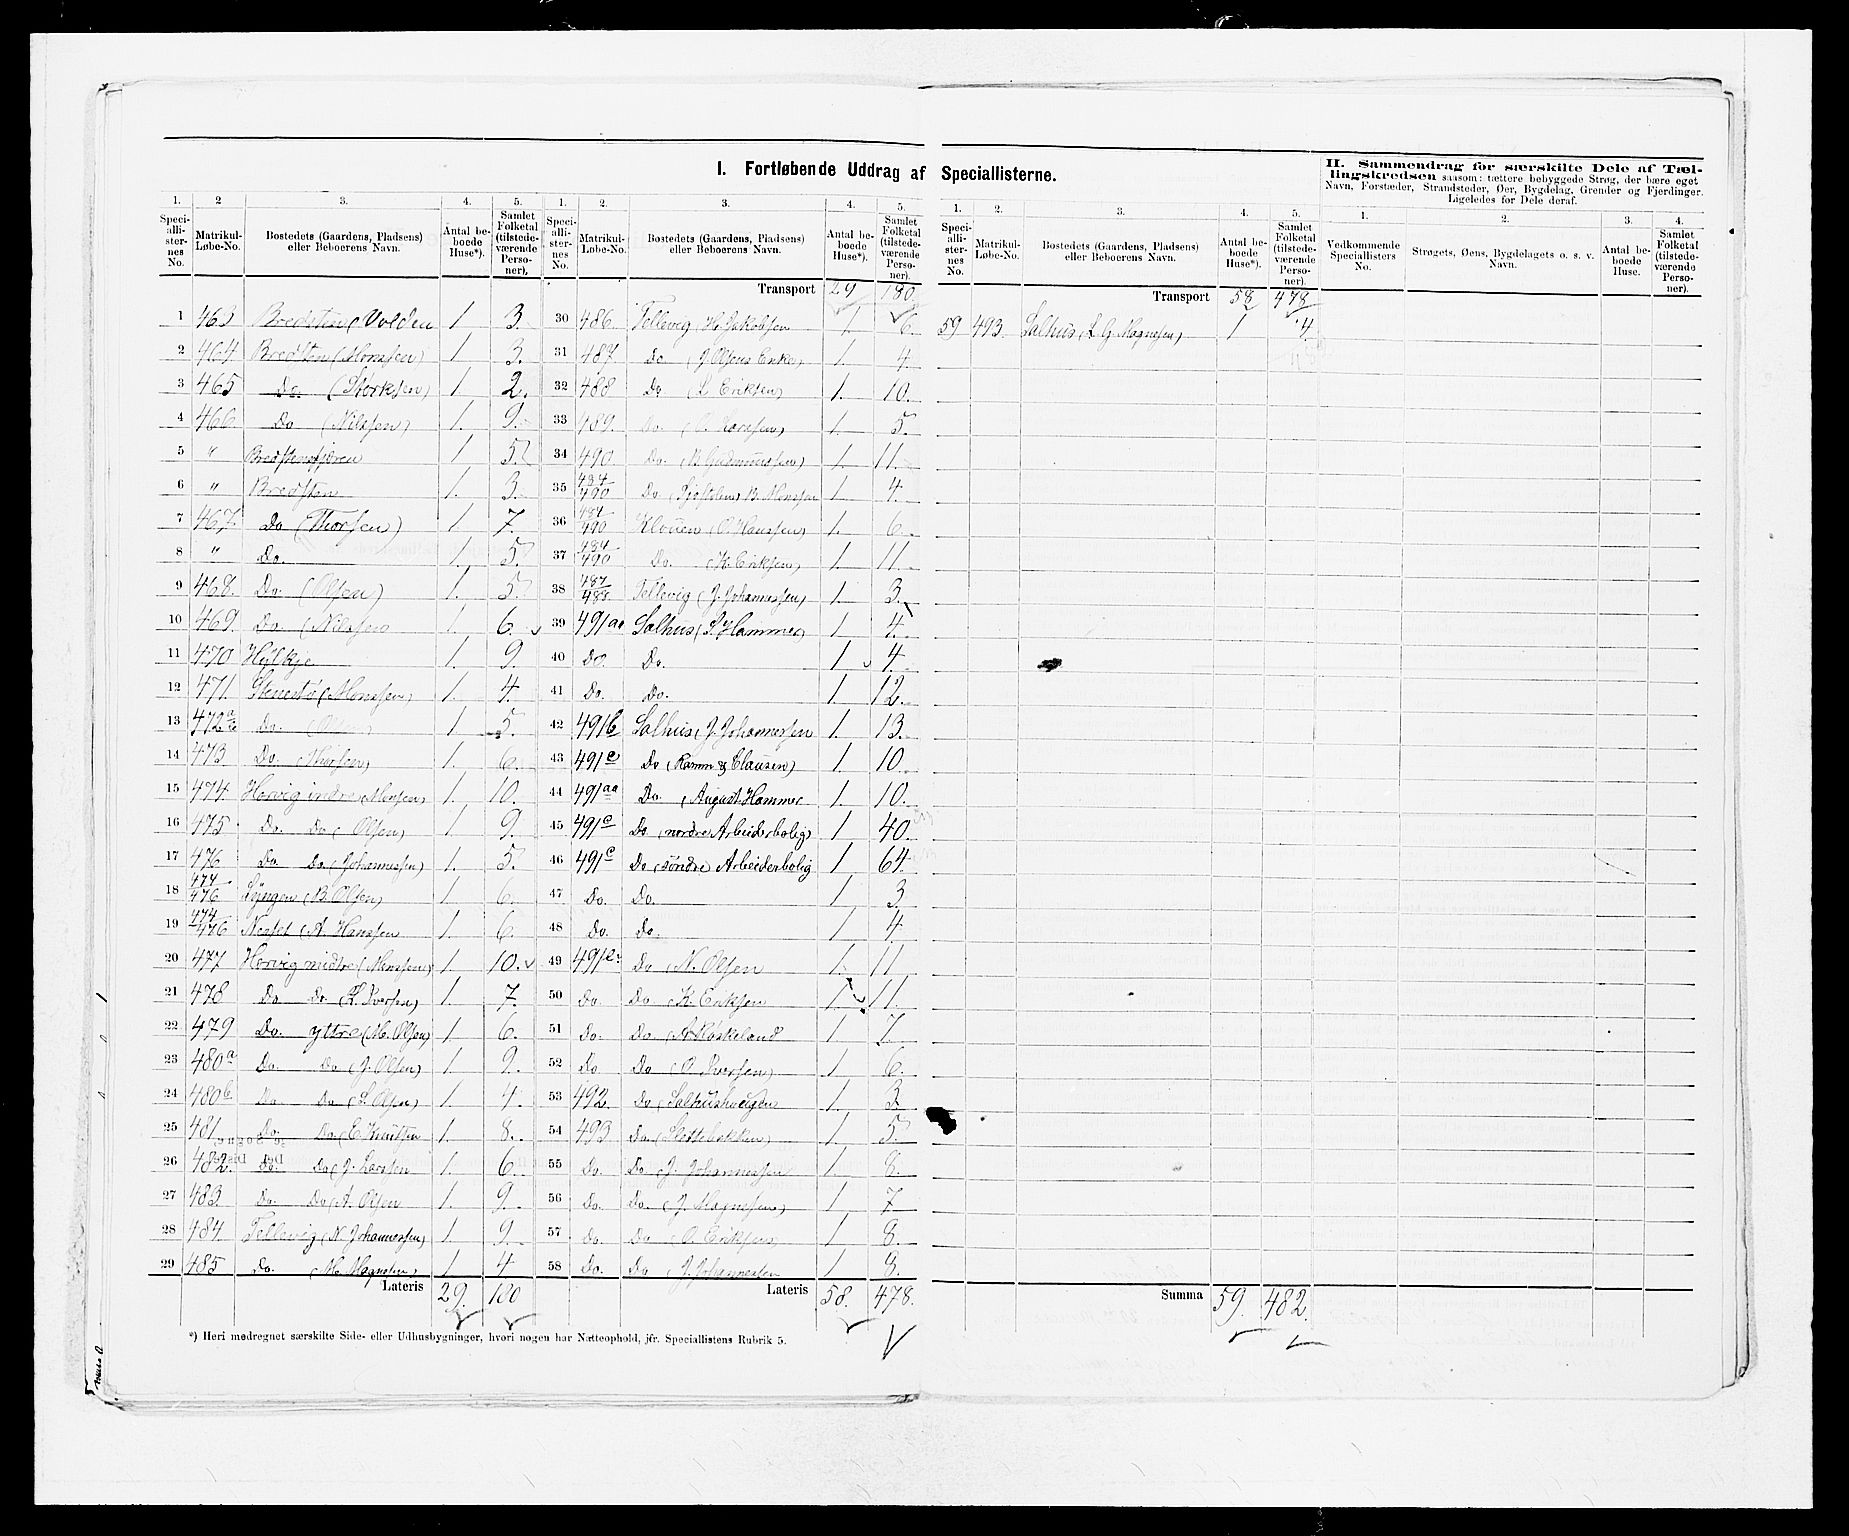 I. Fortløbende Uddrag af Speciallisterne.
II. Sammendrag for særskilte Dele af Tællingskredsen saasom: tættere bebyggede Strøg, der bære eget
Navn, Forstæder, Strandsteder, Øer, Bygdelag, Grender og Fjerdinger.
Ligeledes for Dele deraf.
1. 2 3. 4. 5. 1. 2. 3. 4. 5. 1. 2. 3. 4. 5. 1. 2. 3. 4.
Speciallisternes No. Matrikul-Løbe-No. Bostedets (Gaardens, Pladsens) eller Beboerens Navn. Antal beboede Huse*). Samlet Folketal (tilstedeværende Personer).
Speciallisternes No. Matrikul-Løbe-No. Bostedets (Gaardens, Pladsens) eller Beboerens Navn. Antal beboede Huse*). Samlet Folketal (tilstedeværende Personer).
Speciallisternes No. Matrikul-Løbe-No. Bostedets (Gaardens, Pladsens) eller Beboerens Navn. Antal beboede Huse*). Samlet Folketal (tilstedeværende Personer).
Vedkommende Speciallisters No. Strøgets, Øens, Bygdelagets o. s. v. Navn. Antal beboede Huse. Samlet Folketal (tilstedeværende Personer).
1 463 Bredsten (Volden 1 3.
2 464 Bredsten (Monssen) 1 3.
3 465 Do. (Storksen) 1 2.
4 466 Do (Nilssen) 1. 9.
5 " 1 5.
6 " Bredsten 1. 3.
7 467. Do (Thorsen) 1 7.
8 " Do. 1. 5.
9 468. Do. (Olsen) 1. 5.
10 469. Do. (Nilssen 1. 6.
11 470 Hylkje 1. 9.
12 471. (Monssen) 1. 4.
13 472 Do. 1 5.
14 473 Do. (Thorsen) 1. 6.
15 474 Horvig indre (Monsen) 1. 10.
16 475 Do. Do (Olsen) 1. 9.
17 476 Do Do. (Johannessen) 1. 5.
18 474/476 Lyngen (B. Olsen) 1. 6.
19 474/476 Nesset (A. Hanssen 1. 6.
20 477 Horvig midtre (Monssen) 1. 10.
21 478 Do Do (L. Iversen) 1. 7.
22 479 Do. yttre (M. Olsen) 1. 6.
23 480a Do. Do (J. Olsen) 1. 9.
24 480b. Do. Do (L. Olsen) 1. 4.
25 481 Do. Do. (E. Knutsen 1. 8.
26 482. Do. Do (J. Larssen 1. 6.
27 483. Do. Do (A. Olsen 1. 9.
28 484. Tellevig (N. Johannessen) 1. 9.
29 485 Do. (M. Magnesen) 1 4
Lateris 29. 180
Transport 29 180.
30 486. Tellevig (H. Jakobsen 1 6.
31 487. Do (J. Olsens Enke) 1. 4.
32 488 Do (L. Eriksen) 1. 10.
33 489. Do. (O. Larssen) 1. 5.
34 490 Do. (B. Gudmunssen) 1. 11.
35 484/490 Do B. Monssen 1. 4.
36 484/490 Klouen (O. Hanssen) 1. 6.
37 484/490 Do. (K. Eriksen) 1 11.
38 487/488 Tellevig (J. Johannessen) 1. 3.
39 491aa Salhus (P. Hammer) 1 4.
40 Do. Do. 1 4.
41 Do. Do. 1 12.
42 491b Salhus (J. Johannessen 1. 13.
43 491c Do (Ramm & Clausen) 1. 10.
44 491aa Do. (August Hammer 1. 10.
45 491c Do (nordre Arbeiderbolig) 1 40.
46 491c Do (søndre Arbeiderbolig 1 64.
47 Do. Do. 1 3
48 Do. Do. 1 4.
49 491c. Do (N. Olsen 1. 11
50 Do. Do (K. Eriksen 1 11.
51 Do. Do (A. Haskeland 1 7.
52 Do Do (O. Iversen) 1 6.
53 492. Do (Salhushaugen 1. 3.
54 493 Do. (Slettebakken) 1. 5.
55 Do. Do (J. Johannessen 1. 8.
56 Do. Do. (J. Magnessen) 1 7
57 Do. Do (O. Eriksen) 1 8.
58 Do. Do (J. Johannessen 1 8.
Lateris 58. 478.
Transport 58 478
59 493. Salhus (L. G. Magnesen) 1 4.
Summa 59. 482.
*) Heri medregnet særskilte Side- eller Udhusbygninger, hvori nogen har Natteophold, jfr. Speciallistens Rubrik 5.